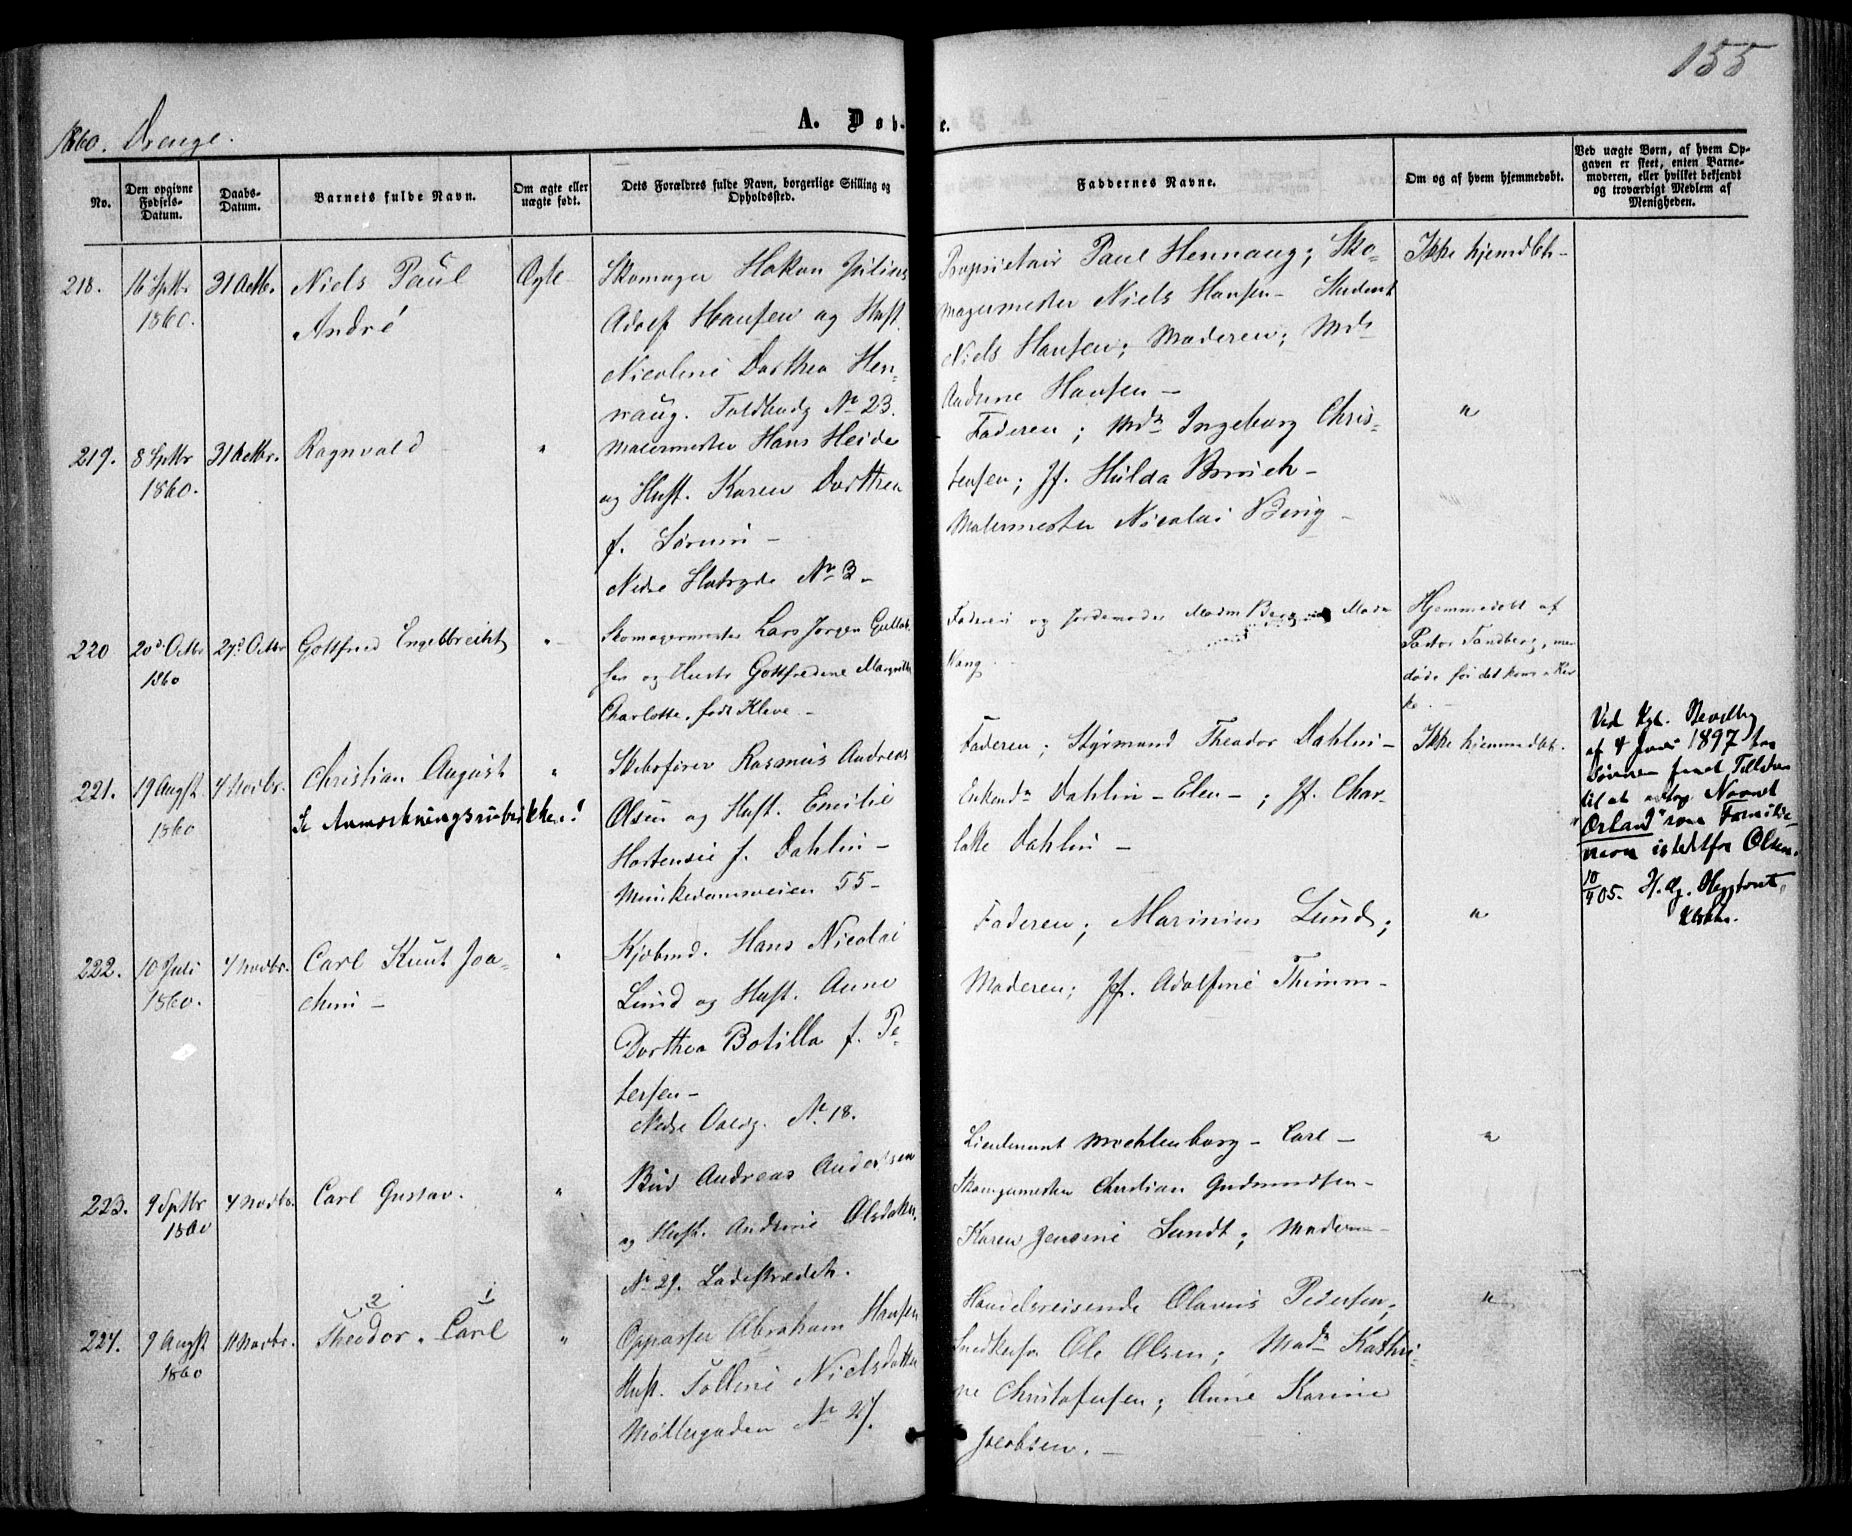 155
1860. Drenge.
A. Døb-
e.
No.
Den opgivne Fødsels-Datum.
Daabs-Datum.
Barnets fulde Navn.
Om ægte eller uægte født.
Dets Forældres fulde Navn, borgerlige Stilling og Opholdssted.
Faddernes Navne.
Om og af hvem hjemmedøbt.
Ved uægte Børn, af hvem Opgaven er skeet, enten Barnemoderen, eller hvilket bekjendt og troværdigt Medlem af Menigheden.
218.
16 Septbr
1860.
31 Octbr.
Niels Paul
André
Ægte
Skomager Hakon Julius
Adolf Hansen og Hust.
Nicoline Dorthea Hen-
naug. Toldbodg No 23.
Proprietair Paul Hennaug; Sko-
magermester Niels Hansen - Student
Niels Hansen; Moderen; Mds
Andrine Hansen -
Ikke hjemdbt-
219.
8 Septbr
1860.
31 Octbr.
Ragnvald
"
Malermester Hans Heide
og Hust. Karen Dorthea
f.
Nedre No 3 -
Faderen; Mdm Ingeborg Chris-
tensen; Jf. Hulda
Malermester Nicolai Bing -
"
220
20de Octbr
1860
27de Octbr
Gottfred Engelbrecht
"
Skomagermester Lars Jørgen
sen og Hustr Gottfredine
Charlotte, født Kleve -
Faderen og Jordemoder Madm
Vang
Hjemmedøbt af
Pastor Tandberg, men
døde før det kom i Kir-
ke. -
221.
19 Augst.
1860
4 Novbr.
Christian August
Se Anmerkningsrubrikken!
"
Skibsfører Rasmus Andreas
Olsen og Hust. Emilie
Hortensie f. Dahlin -
Munkedamsveien 55 -
Faderen; Styrmand Theodor Dahlin -
Enkemdm Dahlin - Elen -; Jf. Char-
lotte Dahlin -
Ikke hjemmedbt.
Ved Kgl. Bevilling
af 4 Juni 1897 har
faaet Tilladelse
til at antage Navnet
"Ørland" som Familie-
navn istedetfor Olsen.
10/4 05.
222.
10 Juli
1860.
4 Novbr.
Carl Knut Joa-
chim -
"
Kjøbmd. Hans Nicolai
Lund og Hust. Anne
Dorthea Botilla f. Pe-
tersen -
Nedre Voldg. No 18.
Faderen; Marinius Lund;
Moderen; Jf. Adolfine Thimm -
"
223.
9 Septbr
1860
4 Novbr.
Carl Gustav.
"
Bud Andreas Andersen
og Hust. Andrine Olsdatter.
No 29. Ladestrædet.
Lieutenant Mechlenburg - Carl -
Skomgermester Christian Gudmundsen -
Karen Jensine Lundt; Moderen -
"
224.
9 Augst
1860
11 Novbr.
2 1
Theodor. Carl
"
Oppasser Abraham Hansen
Hust. Tolline Nielsdatter
Møllergaden No 27.
Handelsreisende Olavus Pedersen,
Snedkersv Ole Olsen; Madm Kathri-
ne Christofersen; Anne Karine
Jacobsen. -
"